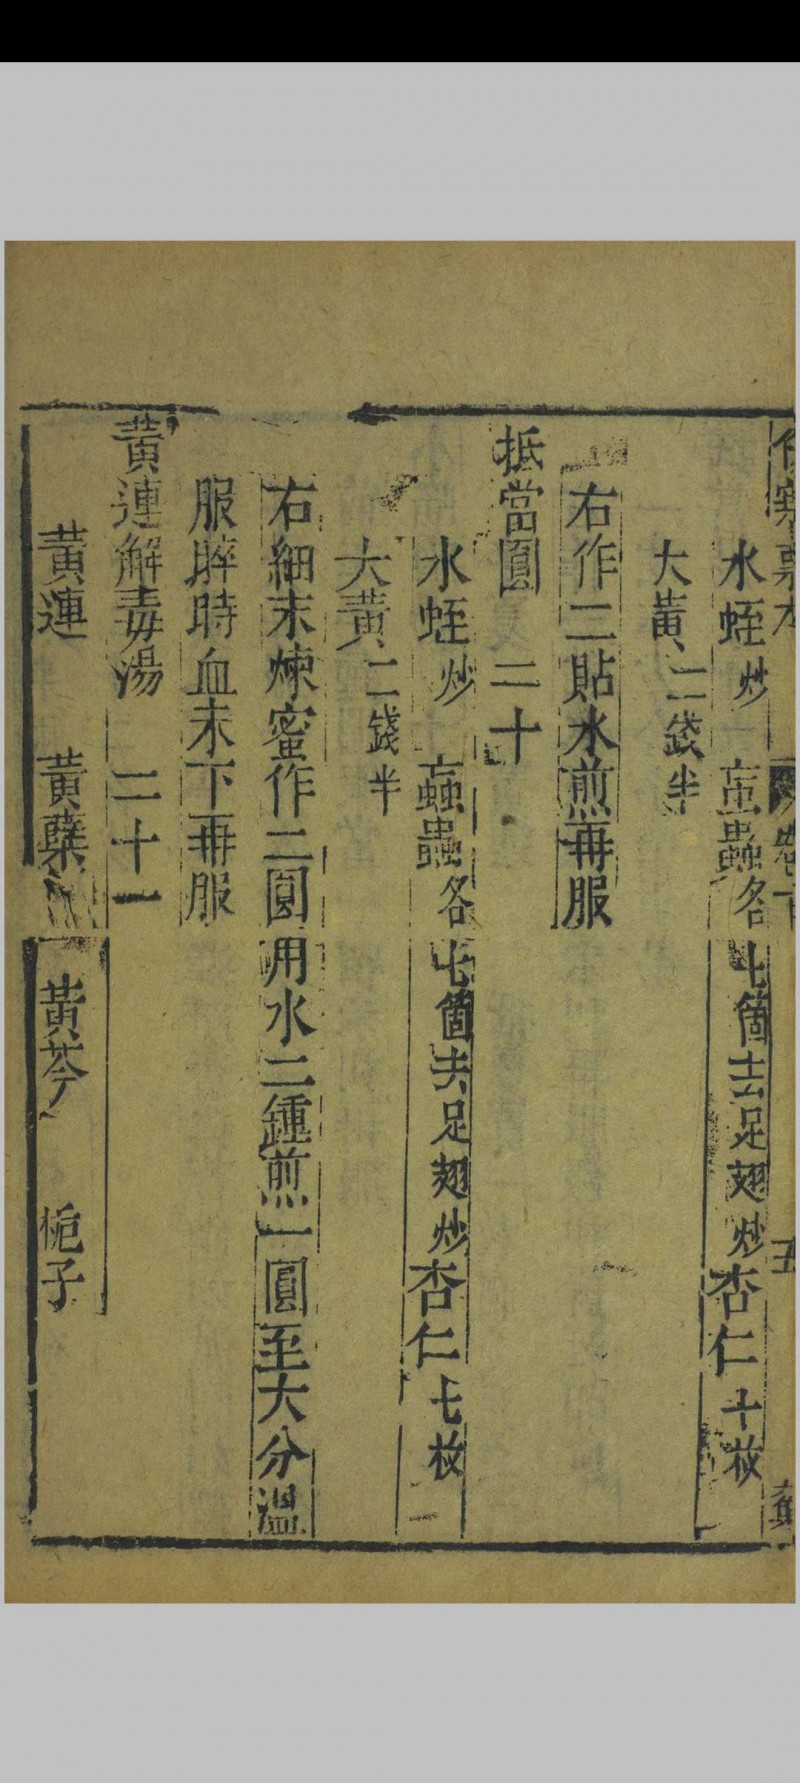 水蛭炒 䖟蟲各七箇去足翅炒杏仁十枚
大黃二錢半
右作二貼水煎再服
抵當圓 二十
水蛭炒 䖟蟲各七箇去足翅炒杏仁七枚
大黃二錢半
右細末煉蜜作二圓用水二鍾煎一圓至大分溫
服晬時血未下再服
黃連解毒湯 二十一
黃連 黃蘗 黃芩 梔子